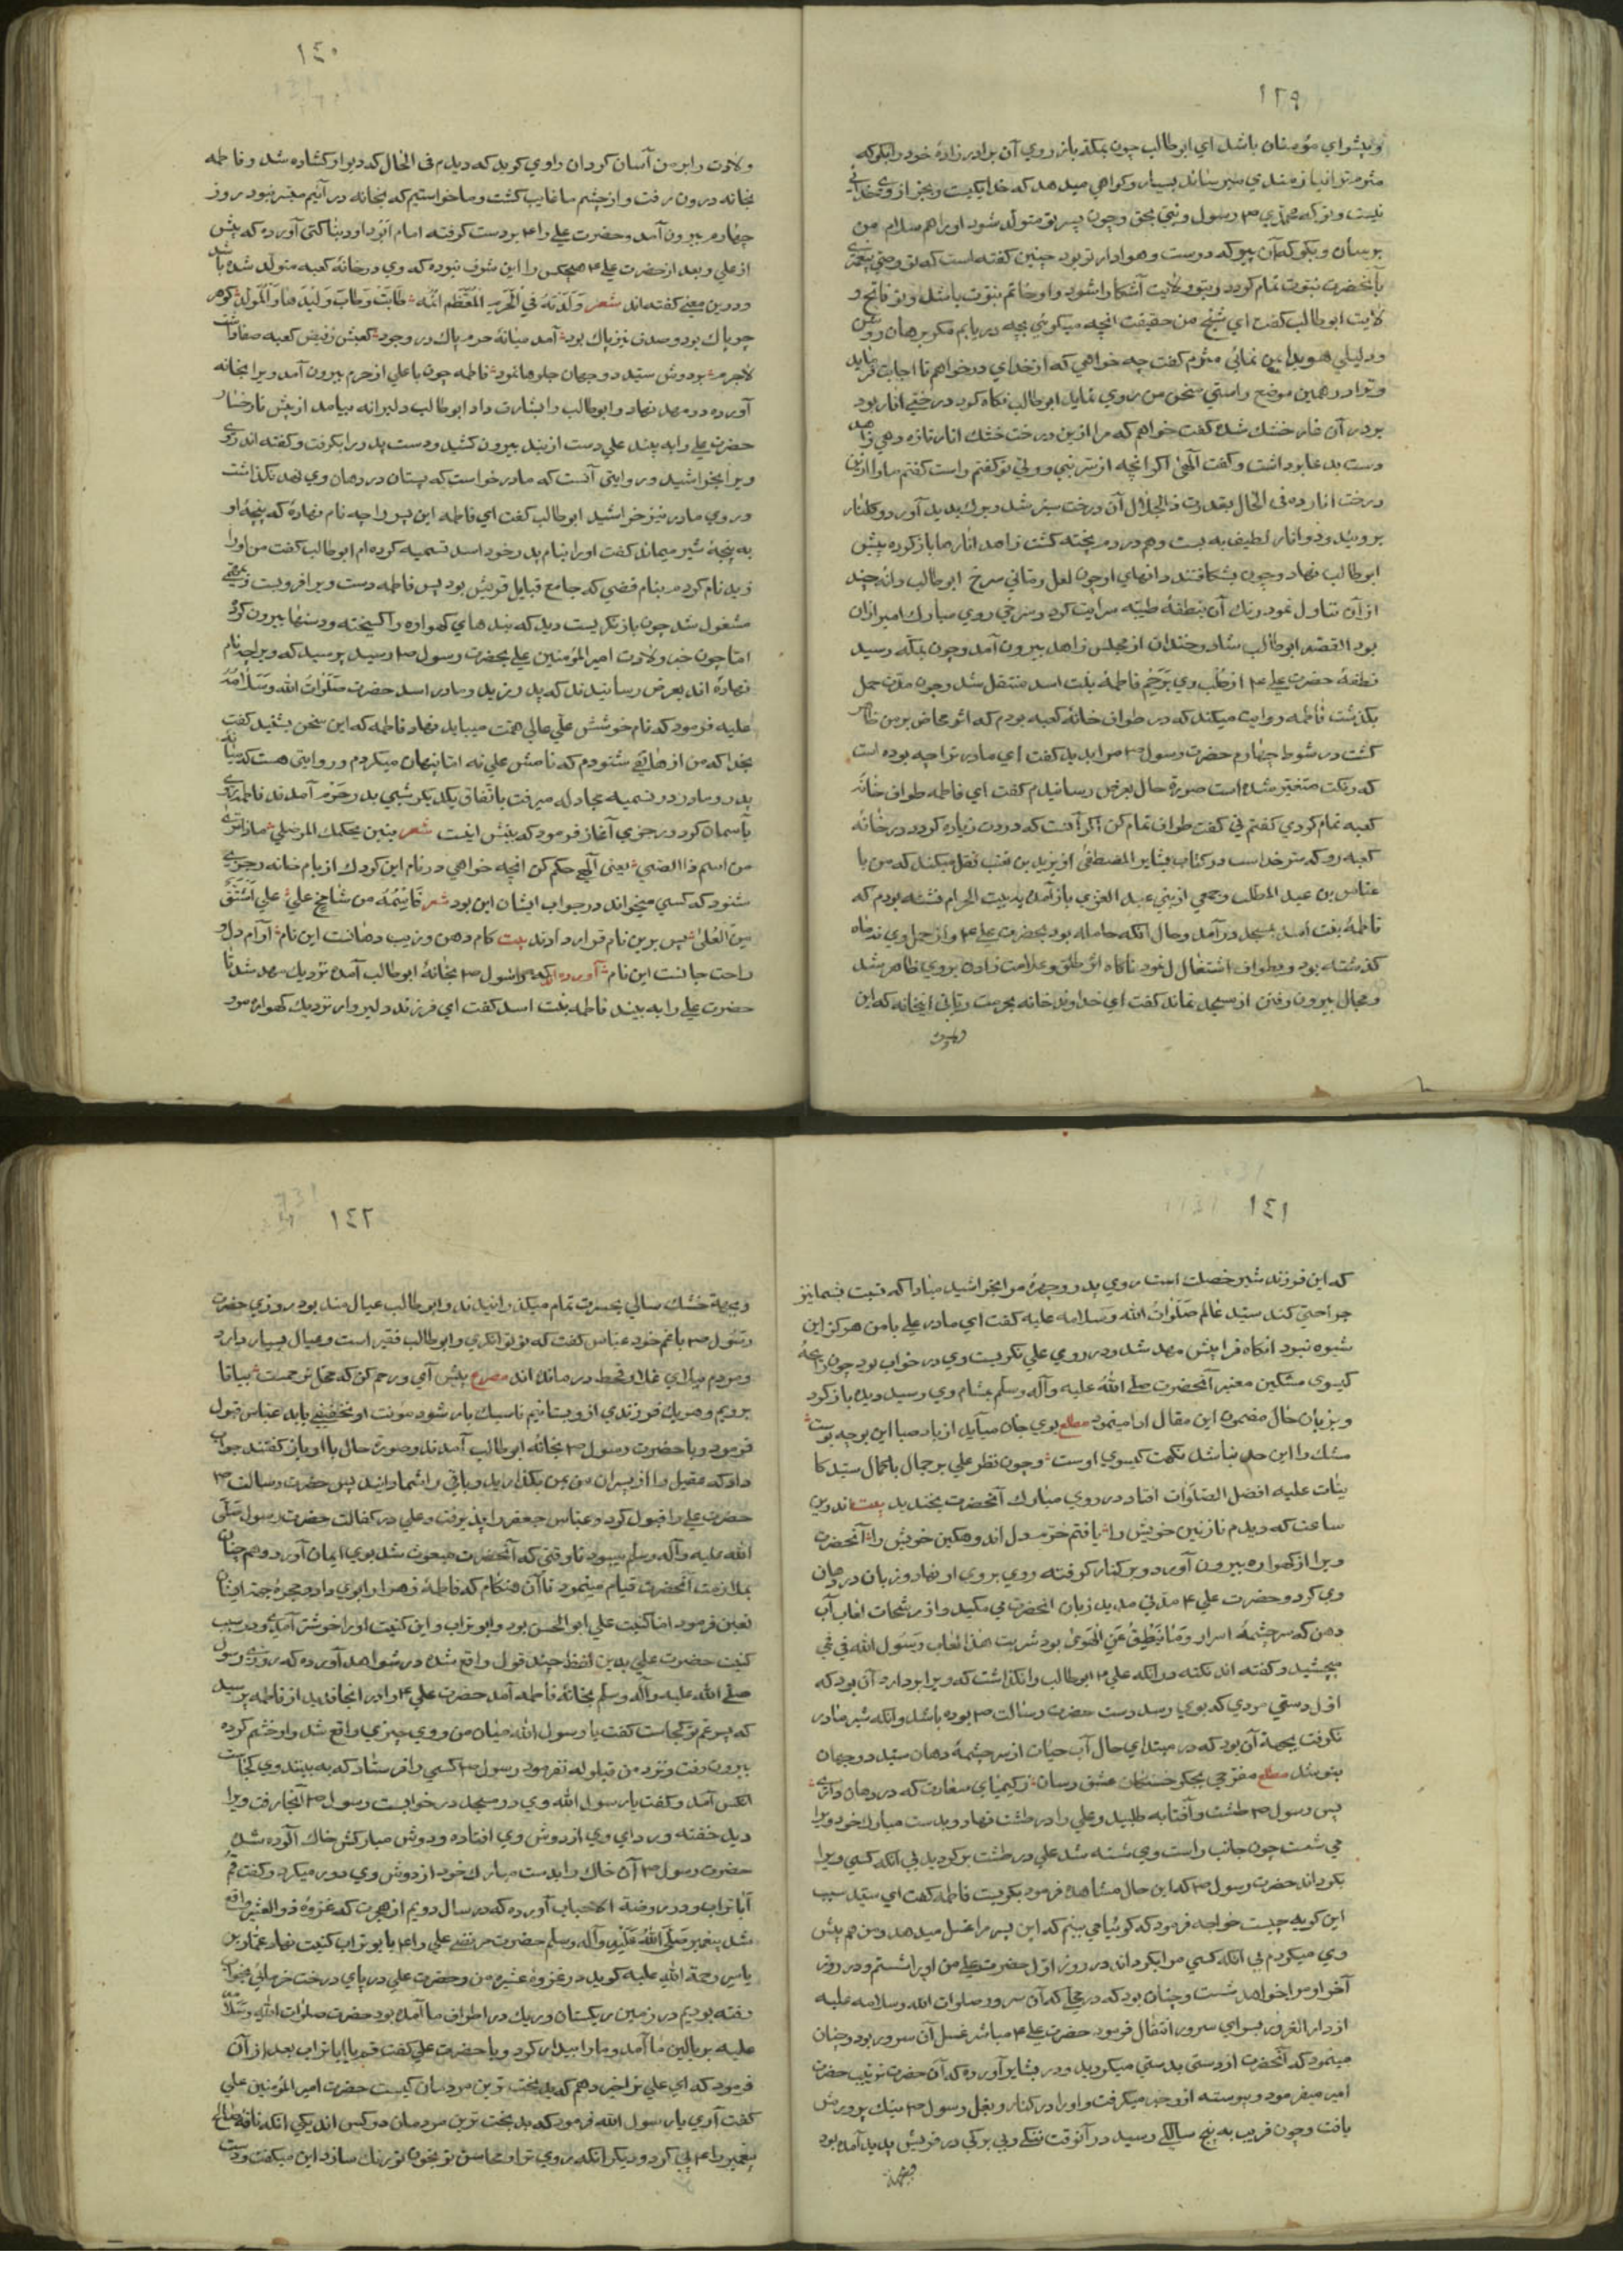 ١٣٩
وپیشوای مؤمنان باشد ای ابوطالب چون بمکه باز روی آن برادر زادهٔ خود را بکو که
مثرم ترا نیازمندی میرساند بسیار وکواهی میدهد که خدا یکیست وبجز از وی خدائی
نیست وتو که محمدی ص رسول ونبی بحق وچون پسر تو متولد شود اورا هم سلام من
برسان وبکو که آن پیر که دوست وهوادار تو بود چنین کفته است که تو وصی پیغمبری
بآنحضرت نبوت تمام کردد وبتو ولایت آشکارا شود واو خاتم نبوت باشد وتو فاتح و
لایت ابوطالب کفت ای شیخ من حقیقت انچه میکوئی بچه دریابم مکر برهان روشن
ودلیلی هویدا بمن نمائی مثرم کفت چه خواهی که از خدای درخواهم تا اجابت فرماید
وترا در همین موضع راستی سخن من روی نماید ابوطالب نکاه کرد درختی انار بود
بر در آن غار خشک شده کفت خواهم که مرا ازین درخت خشک انار تازه دهی زاهد
دست بدعا برداشت وکفت الهی اکر انچه از سر نبی وولی تو کفتم راست کفتم مارا ازین
درخت انار ده فی الحال بقدرت ذالجلال آن درخت سبز شد وبرک پدید آورد وکلنار
برو مید ودو انار لطیف به بست وهم در دم پخته کشت زاهد انارها باز کرده پیش
ابوطالب نهاد وچون بشکافتند دانهای او چون لعل رمانی سرخ ابوطالب دانه چند
از آن تناول نمود رنک آن بنطفهٔ طیبه سرایت کرد وسرخی روی مبارک امیر ازان
بود القصه ابوطالب شاد وخندان از مجلس زاهد بیرون آمد وچون بمکه رسید
نطفهٔ حضرت علی ع از صلب وی برحم فاطمهٔ بنت اسد منتقل شد وچون مدت حمل
بکذشت فاطمه روایت میکند که در طواف خانهٔ کعبه بودم که اثر مخاض بر من ظاهر
کشت در شوط چهارم حضرت رسول ص مرا بدید کفت ای مادر ترا چه بوده است
که رنکت متغیر شده است صورة حال بعرض رسانیدم کفت ای فاطمه طواف خانهٔ
کعبه تمام کردی کفتم نی کفت طواف تمام کن اکر آنست که دردت زیاده کردد در خانهٔ
کعبه رو که سر خداست در کتاب بشایر المصطفی از یزید بن قعنب نقل میکند که من با
عباس بن عبد المطلب وجمعی از بنی عبد العزی بازآمده به بیت الحرام نشسته بودم که
فاطمهٔ بنت اسد بمسجد درآمد وحال انکه حامله بود بحضرت علی ع واز حمل وی نه ماه
کذشته بود وبطواف اشتغال نمود ناکاه اثر طلق وعلامت زادن بروی ظاهر شد
ومجال بیرون رفتن از مسجد نماند کفت ای خداوند خانه بحرمت بانی اینخانه که این
١٤٠
ولادت را بر من آسان کردان راوی کوید که دیدم فی الحال که دیوار کشاده شد وفاطمه
بخانه درون رفت واز چشم ما غایب کشت وما خواستیم که بخانه در آئیم میسر نبود روز
چهارم بیرون آمد وحضرت علی را ع بر دست کرفته امام ابو داود بناکتی آورده که پیش
از علی وبعد از حضرت علی ع هیچکس را این شرف نبوده که وی در خانهٔ کعبه متولد شده باشد
ودرین معنی کفته اند شعر وَلَدَتْهُ فِی الْحَرَمِ الْمُعَظَّمِ اُمُّهُ طَابَتْ وَطَابَ وَلِیدُهَا وَالْمَوْلِدُ کوهر
چو پاک بود وصدف نیز پاک بود آمد میانهٔ حرم پاک در وجود کعبش ز فیض کعبه صفا داشت
لاجرم بر دوش سید دو جهان جلوها نمود فاطمه چون با علی از حرم بیرون آمد ویرا بخانه
آورده در مهد نهاد وابوطالب را بشارت داد ابوطالب دلیرانه بیامد از پیش تا رخسار
حضرت علی را به بیند علی دست از بند بیرون کشید ودست پدر را بکرفت وکفته اند روی
ویرا بخراشید ودر روایتی آنست که مادر خواست که پستان در دهان وی نهد نکذاشت
وروی مادر نیز خراشید ابوطالب کفت ای فاطمه این پسر را چه نام نهادهٔ که پنجهٔ او
به پنجهٔ شیر میماند کفت اورا بنام پدر خود اسد تسمیه کرده ام ابوطالب کفت من اورا
زید نام کردم بنام قصی که جامع قبایل قریش بود پس فاطمه دست ویرا فرو بست وبمهمی
مشغول شد چون باز نکریست دید که بندهای کهواره را کسیخته ودستها بیرون کرده
اما چون خبر ولادت امیر المؤمنین علی بحضرت رسول ص رسید پرسید که ویرا چه نام
نهاده اند بعرض رسانیدند که پدر زید ومادر اسد حضرت صلوات الله وسلامه
علیه فرمود که نام خوشش علی عالی همت میباید نهاد فاطمه که این سخن بشنید کفت
بخدا که من از هاتفی شنودم که نامش علی نه اما پنهان میکردم ودر روایتی هست که میان
پدر ومادر در تسمیه مجادله میرفت باتفاق یکدیکر شبی بدر حرم آمدند فاطمه روی
بآسمان کرد رجزی آغاز فرمود که بیتش اینست شعر بین بحکمک المرضی ماذا تری
من اسم ذا الصبی یعنی الهی حکم کن انچه خواهی در نام این کودک از بام خانه رجزی
شنود که کسی میخواند در جواب ایشان این بود شعر فَاسْمُهُ من شَامِخٍ عَلِیٌّ عَلِیٌّ اشْتُقَّ
مِنَ الْعَلِیِّ پس برین نام قرار دادند بیت کام دهن وزیب دهانست این نام آرام دل و
راحت جانست این نام آورده اند که رسول ص بخانهٔ ابوطالب آمده نزدیک مهد شد تا
حضرت علی را به بیند فاطمه بنت اسد کفت ای فرزند دلیر وار نزدیک کهواره مرو
١٤١
که این فرزند شیر خصلت است روی پدر وچهرهٔ مرا بخراشید مبادا که نسبت بشما نیز
جراحتی کند سید عالم صلوات الله وسلامه علیه کفت ای مادر علی با من هرکز این
شیوه نبود انکاه فرا پیش مهد شد ودر روی علی نکریست وی در خواب بود چون رایحهٔ
کیسوی مشکین معنبر آنحضرت صلی الله علیه وآله وسلم بمشام وی رسید دیده باز کرد
وبزبان حال مضمون این مقال ادا مینمود مطلع بوی جان میآید از باد صبا این بو چه بوست
مشک را این حد نباشد نکهت کیسوی اوست وچون نظر علی بر جمال با کمال سید کا
ینات علیه افضل الصلوات افتاد در روی مبارک آنحضرت بخندید بیت اندرین
ساعت که دیدم نازنین خویش را یافتم خرم دل اندوهکین خویش را آنحضرت
ویرا از کهواره بیرون آورد وبر کنار کرفته روی بروی او نهاد وزبان در دهان
وی کرد وحضرت علی ع مدتی مدید زبان انحضرت می مکید واز رشحات لعاب آب
دهن که سرچشمهٔ اسرار وَمَا یَنْطِقُ عَنِ الْهَوی بود شربت هذا لعاب رسول الله فی فمی
میچشید وکفته اند نکته در انکه علی ع ابوطالب را نکذاشت که ویرا بردارد آن بود که
اول دستی مردی که بوی رسد دست حضرت رسالت ص بوده باشد وانکه شیر مادر
نکرفت بجهة آن بود که در مبتدای حال آب حیات از سرچشمهٔ دهان سید دو جهان
بنوشد مطلع مفرحی بجکر خستکان عشق رسان ز کیمیای سعادت که در دهان داری
پس رسول ص طشت وآفتابه طلبید وعلی را در طشت نهاد وبدست مبارک خود ویرا
می شست چون جانب راست وی شسته شد علی در طشت بر کردید بی انکه کسی ویرا
بکرداند حضرت رسول ص که این حال مشاهده فرمود بکریست فاطمه کفت ای سید سبب
این کریه چیست خواجه فرمود که کوئیا می بینم که این پسر مرا غسل میدهد ومن هم پیش
وی میکردم بی انکه کسی مرا بکرداند در روز اول حضرت علی من اورا شستم ودر روز
آخر او مرا خواهد شست وچنان بود که در محلی که آن سرور صلوات الله وسلامه علیه
از دار الغرور بسرای سرور انتقال فرمود حضرت علی ع مباشر غسل آن سرور بود وچنان
مینمود که آنحضرت از دستی بدستی میکردید ودر بشایر آورده که آن حضرت تربیت حضرت
امیر میفرمود وپیوسته ازو خبر میکرفت واورا در کنار وبغل رسول ص نیک پرورش
یافت وچون قریب به پنج سالکی رسید در آنوقت تنکی وبی برکی در قریش پدید آمده بود
١٤٢
وبجهة خشک سالی بعسرت تمام میکذرانیدند وابوطالب عیال مند بود روزی حضرت
رسول ص با عم خود عباس کفت که تو توانکری وابوطالب فقیر است وعیال بسیار دارد
ومردم ببلای غلا وقحط درمانده اند مصرع پیش آی ورحم کن که محل ترحمست بیا تا
برویم وهر یک فرزندی ازو بستانیم تا سبک بار شود مؤنت او تخفیفی یابد عباس قبول
فرمود وبا حضرت رسول ص بخانهٔ ابوطالب آمدند وصورة حال با او باز کفتند جواب
داد که عقیل را از پسران من بمن بکذارید وباقی را شما دانید پس حضرت رسالت ص
حضرت علی را قبول کرد وعباس جعفر را پذیرفت وعلی در کفالت حضرت رسول صلی
الله علیه وآله وسلم میبود تا وقتی که آنحضرت مبعوث شد بوی ایمان آورد وهم چنان
بملازمت آنحضرت قیام مینمود تا آن هنکام که فاطمهٔ زهرا را بوی داد وحجرهٔ جهة ایشان
تعیین فرمود اما کنیت علی ابو الحسن بود وابو تراب واین کنیت اورا خوشتر آمدی ودر سبب
کنیت حضرت علی بدین لفظ چند قول واقع شده در شواهد آورده که روزی رسول
صلی الله علیه وآله وسلم بخانهٔ فاطمه آمد حضرت علی ع را در انجا ندید از فاطمه پرسید
که پسر عم تو کجاست کفت یا رسول الله میان من ووی چیزی واقع شد واو خشم کرده
بیرون رفت ونزد من قیلوله نفرمود رسول ص کسی را فرستاد که به بیند وی کجاست
انکس آمد وکفت یا رسول الله وی در مسجد در خوابست رسول ص آنجا رفت ویرا
دید خفته وردای وی از دوش وی افتاده ودوش مبارکش خاک آلوده شده
حضرت رسول ص آن خاک را بدست مبارک خود از دوش وی دور میکرد وکفت قم
آبا تراب ودر روضة الاحباب آورده که در سال دویم از هجرت که غزوهٔ ذو العشیره واقع
شد پیغمبر صلی الله علیه وآله وسلم حضرت مرتضی علی را ع بابو تراب کنیت نهاد عمار بن
یاسر رحمة الله علیه کوید در غزوهٔ عشیره من وحضرت علی در پای درخت خرمائی بخواب
رفته بودیم در زمین ریکستان وریک در اطراف ما آمده بود حضرت صلوات الله وسلامه
علیه بر بالین ما آمد ومارا بیدار کرد وبا حضرت علی کفت قم یا ابا تراب بعد از آن
فرمود که ای علی ترا خبر دهم که بدبخت ترین مردمان کیست حضرت امیر المؤمنین علی
کفت آری یا رسول الله فرمود که بدبخت ترین مردمان دو کس اند یکی انکه ناقهٔ صالح
پیغمبر را ع پی کرد ودیکر انکه روی ترا ومحاسن تو بخون تو رنک سازد این میکفت ودست